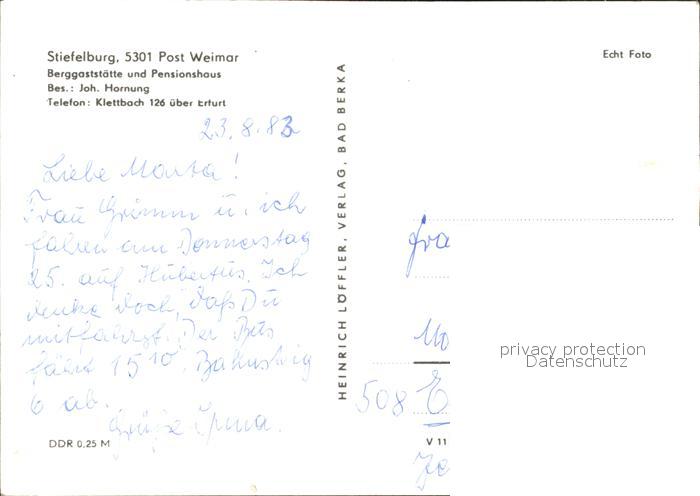 Stiefelburg, 5301 Post Weimar
Berggaststätte und Pensionshaus
Bes.: Joh. Hornung
Telefon: Klettbach 126 über Erfurt
23.8.83
Liebe Marta!
Frau Grimm u. ich
fahren am Donnerstag
25. auf Hubertus. Ich
denke doch, daß Du
mitfährst. Der Bus
fährt 15¹⁰
6 ab.
Grüße Irma.
DDR 0,25 M
HEINRICH LÖFFLER, VERLAG, BAD BERKA
Echt Foto
Fra
508 E
V 11
privacy protection
Datenschutz